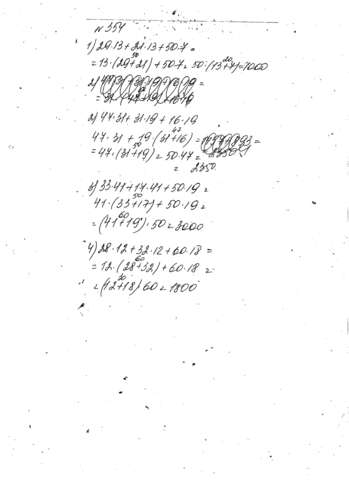 № 354
1) 29·13+21·13+50·7=
=13·(29+21)+50·7=50·(13+7)=1000
2) 47·31+31·19+16·19
47·31+19(31+16)=
=47·(31+19)=50·47=
= 2350.
3) 33·41+17·41+50·19=
41·(33+17)+50·19=
=(41+19)·50=3000
4) 28·12+32·12+60·18=
=12·(28+32)+60·18=
=(12+18)60=1800